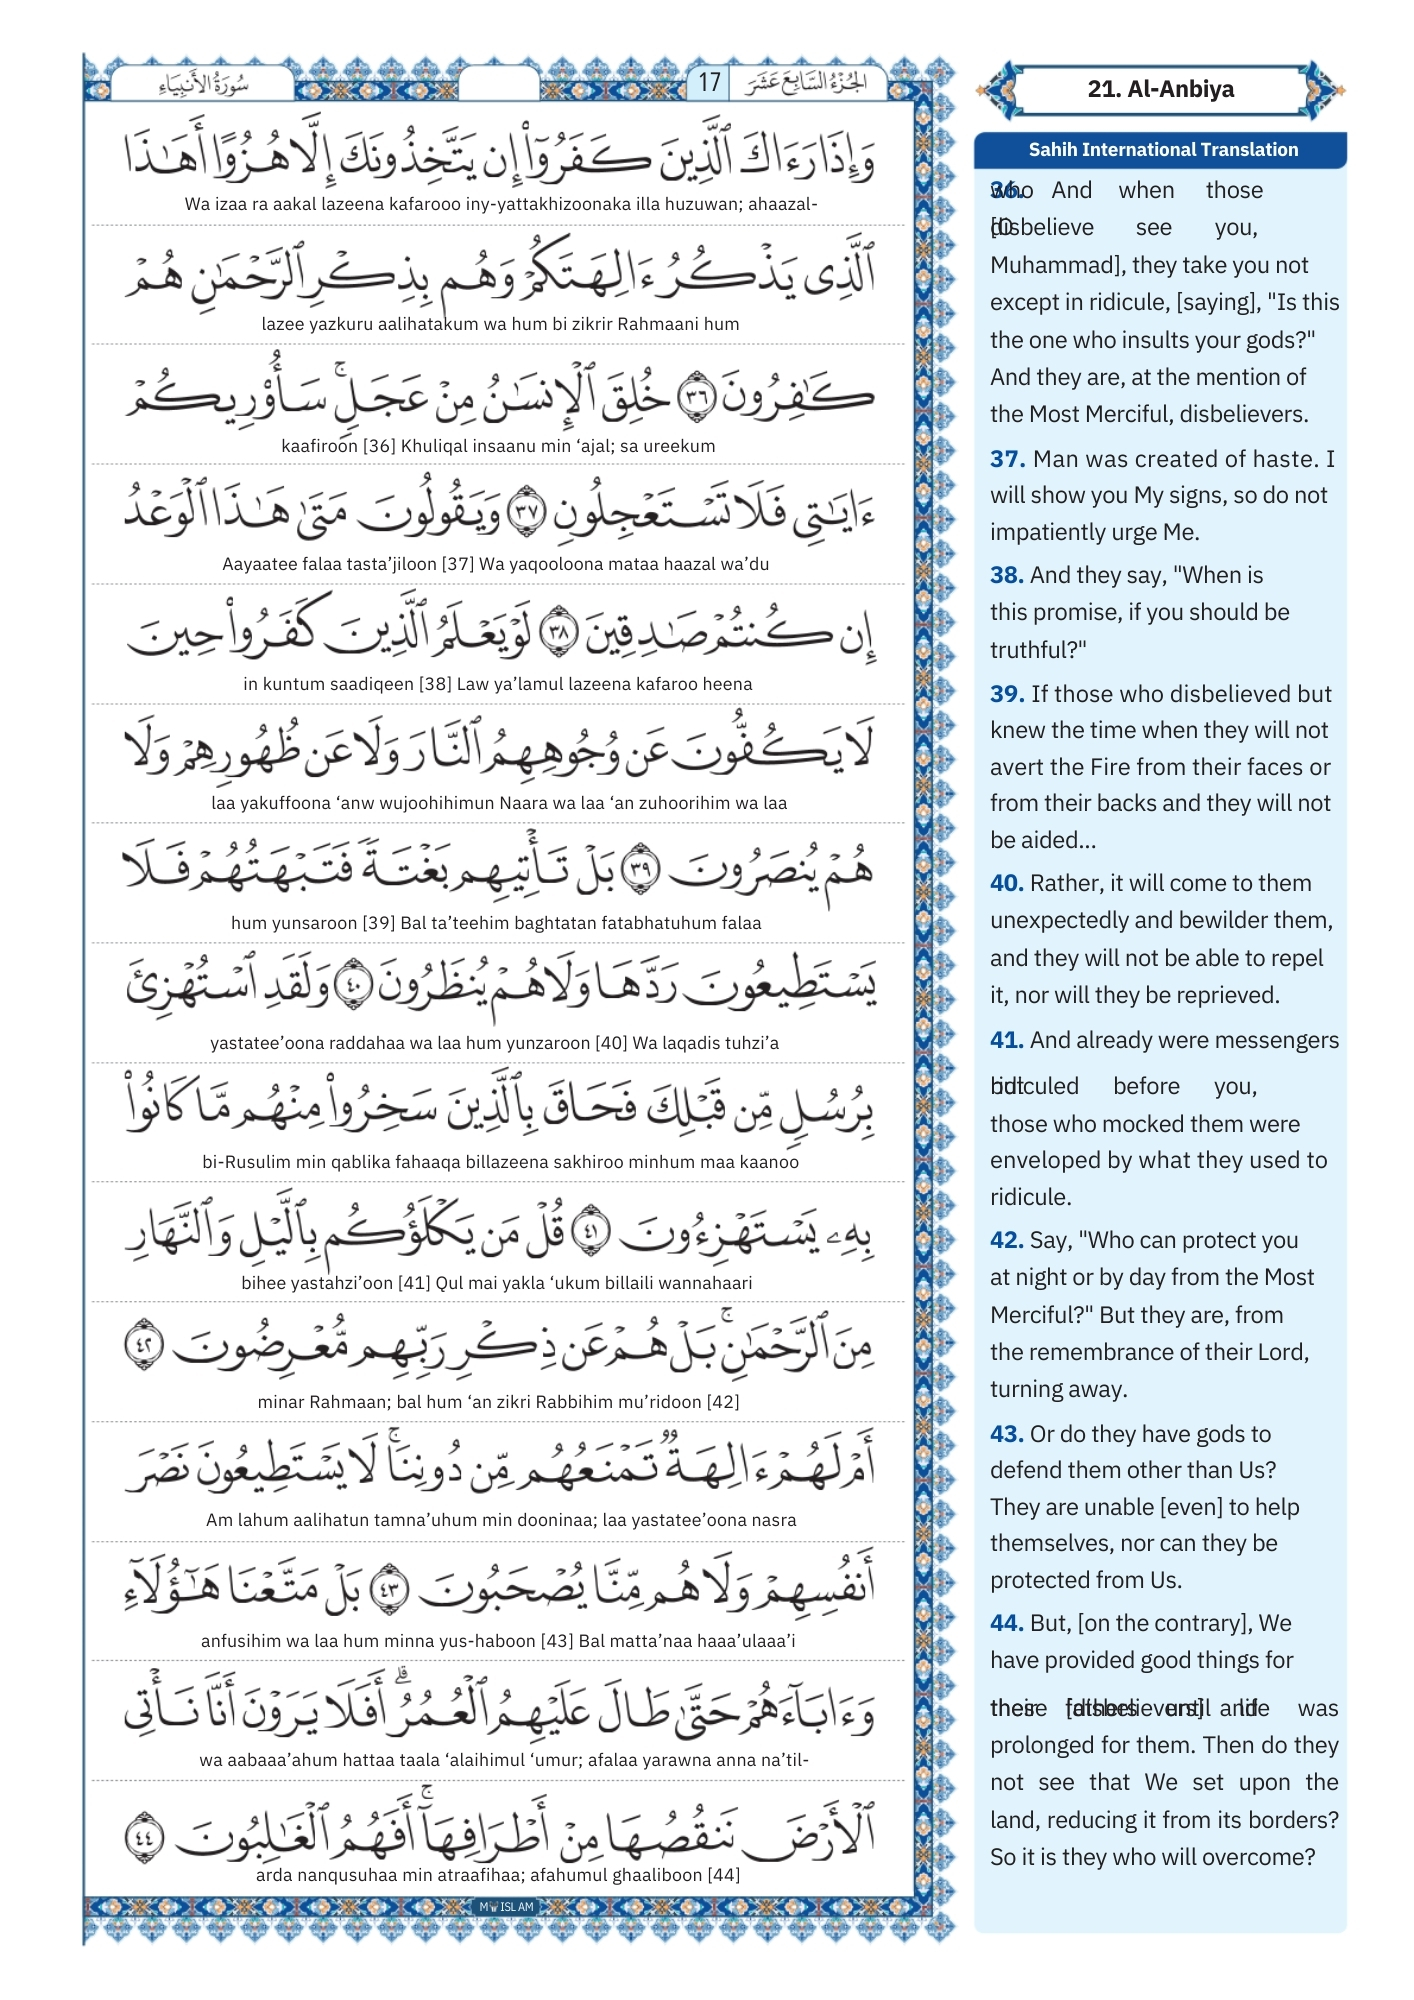 سُورَةُ الأَنبِيَاءِ
17
الجُزْءُ السَّابِعَ عَشَرَ
وَإِذَا رَءَاكَ ٱلَّذِينَ كَفَرُوٓا۟ إِن يَتَّخِذُونَكَ إِلَّا هُزُوًا أَهَـٰذَا
Wa izaa ra aakal lazeena kafarooo iny-yattakhizoonaka illa huzuwan; ahaazal-
ٱلَّذِى يَذْكُرُ ءَالِهَتَكُمْ وَهُم بِذِكْرِ ٱلرَّحْمَـٰنِ هُمْ
lazee yazkuru aalihatakum wa hum bi zikrir Rahmaani hum
كَـٰفِرُونَ ٣٦ خُلِقَ ٱلْإِنسَـٰنُ مِنْ عَجَلٍ ۚ سَأُو۟رِيكُمْ
kaafiroon [36] Khuliqal insaanu min ‘ajal; sa ureekum
ءَايَـٰتِى فَلَا تَسْتَعْجِلُونِ ٣٧ وَيَقُولُونَ مَتَىٰ هَـٰذَا ٱلْوَعْدُ
Aayaatee falaa tasta’jiloon [37] Wa yaqooloona mataa haazal wa’du
إِن كُنتُمْ صَـٰدِقِينَ ٣٨ لَوْ يَعْلَمُ ٱلَّذِينَ كَفَرُوا۟ حِينَ
in kuntum saadiqeen [38] Law ya’lamul lazeena kafaroo heena
لَا يَكُفُّونَ عَن وُجُوهِهِمُ ٱلنَّارَ وَلَا عَن ظُهُورِهِمْ وَلَا
laa yakuffoona ‘anw wujoohihimun Naara wa laa ‘an zuhoorihim wa laa
هُمْ يُنصَرُونَ ٣٩ بَلْ تَأْتِيهِم بَغْتَةً فَتَبْهَتُهُمْ فَلَا
hum yunsaroon [39] Bal ta’teehim baghtatan fatabhatuhum falaa
يَسْتَطِيعُونَ رَدَّهَا وَلَا هُمْ يُنظَرُونَ ٤٠ وَلَقَدِ ٱسْتُهْزِئَ
yastatee’oona raddahaa wa laa hum yunzaroon [40] Wa laqadis tuhzi’a
بِرُسُلٍ مِّن قَبْلِكَ فَحَاقَ بِٱلَّذِينَ سَخِرُوا۟ مِنْهُم مَّا كَانُوا۟
bi-Rusulim min qablika fahaaqa billazeena sakhiroo minhum maa kaanoo
بِهِۦ يَسْتَهْزِءُونَ ٤١ قُلْ مَن يَكْلَؤُكُم بِٱلَّيْلِ وَٱلنَّهَارِ
bihee yastahzi’oon [41] Qul mai yakla ‘ukum billaili wannahaari
مِنَ ٱلرَّحْمَـٰنِ ۚ بَلْ هُمْ عَن ذِكْرِ رَبِّهِم مُّعْرِضُونَ ٤٢
minar Rahmaan; bal hum ‘an zikri Rabbihim mu’ridoon [42]
أَمْ لَهُمْ ءَالِهَةٌ تَمْنَعُهُم مِّن دُونِنَا ۚ لَا يَسْتَطِيعُونَ نَصْرَ
Am lahum aalihatun tamna’uhum min dooninaa; laa yastatee’oona nasra
أَنفُسِهِمْ وَلَا هُم مِّنَّا يُصْحَبُونَ ٤٣ بَلْ مَتَّعْنَا هَـٰٓؤُلَآءِ
anfusihim wa laa hum minna yus-haboon [43] Bal matta’naa haaa’ulaaa’i
وَءَابَآءَهُمْ حَتَّىٰ طَالَ عَلَيْهِمُ ٱلْعُمُرُ ۗ أَفَلَا يَرَوْنَ أَنَّا نَأْتِى
wa aabaaa’ahum hattaa taala ‘alaihimul ‘umur; afalaa yarawna anna na’til-
ٱلْأَرْضَ نَنقُصُهَا مِنْ أَطْرَافِهَآ ۚ أَفَهُمُ ٱلْغَـٰلِبُونَ ٤٤
arda nanqusuhaa min atraafihaa; afahumul ghaaliboon [44]
21. Al-Anbiya
Sahih International Translation
36. And when those
who disbelieve see you, [O
Muhammad], they take you not
except in ridicule, [saying], "Is this
the one who insults your gods?"
And they are, at the mention of
the Most Merciful, disbelievers.
37. Man was created of haste. I
will show you My signs, so do not
impatiently urge Me.
38. And they say, "When is
this promise, if you should be
truthful?"
39. If those who disbelieved but
knew the time when they will not
avert the Fire from their faces or
from their backs and they will not
be aided...
40. Rather, it will come to them
unexpectedly and bewilder them,
and they will not be able to repel
it, nor will they be reprieved.
41. And already were messengers
ridiculed before you, but
those who mocked them were
enveloped by what they used to
ridicule.
42. Say, "Who can protect you
at night or by day from the Most
Merciful?" But they are, from
the remembrance of their Lord,
turning away.
43. Or do they have gods to
defend them other than Us?
They are unable [even] to help
themselves, nor can they be
protected from Us.
44. But, [on the contrary], We
have provided good things for
these [disbelievers] and
their fathers until life was
prolonged for them. Then do they
not see that We set upon the
land, reducing it from its borders?
So it is they who will overcome?